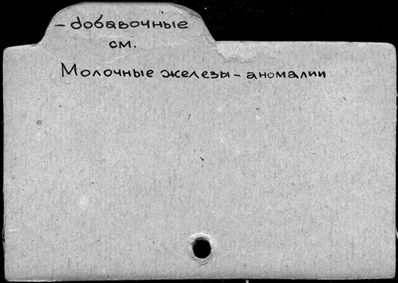 - добавочные
см.
Молочные железы - аномалии